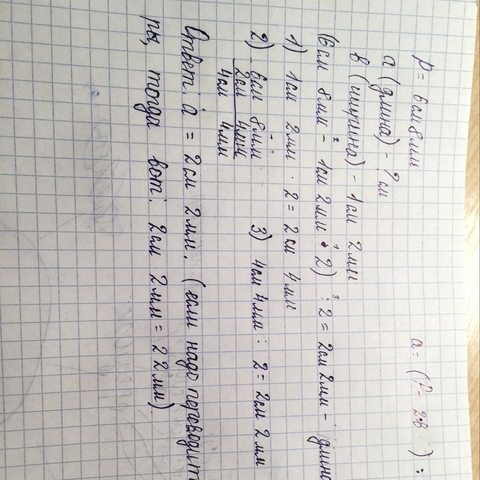 P = 6см 8мм
a (длина) - ? см
a = (P - 2в ) :
в (ширина) - 1см 2мм
(6см 8мм - 1см 2мм · 2) : 2 = 2см 2мм - длина
1) 1см 2мм · 2 = 2см 4мм
2) 6см 8мм
2см 4мм
4см 4мм
3) 4см 4мм : 2 = 2см 2мм
Ответ: a = 2см 2мм. (если надо переводит
ры, тогда вот: 2см 2мм = 22мм).